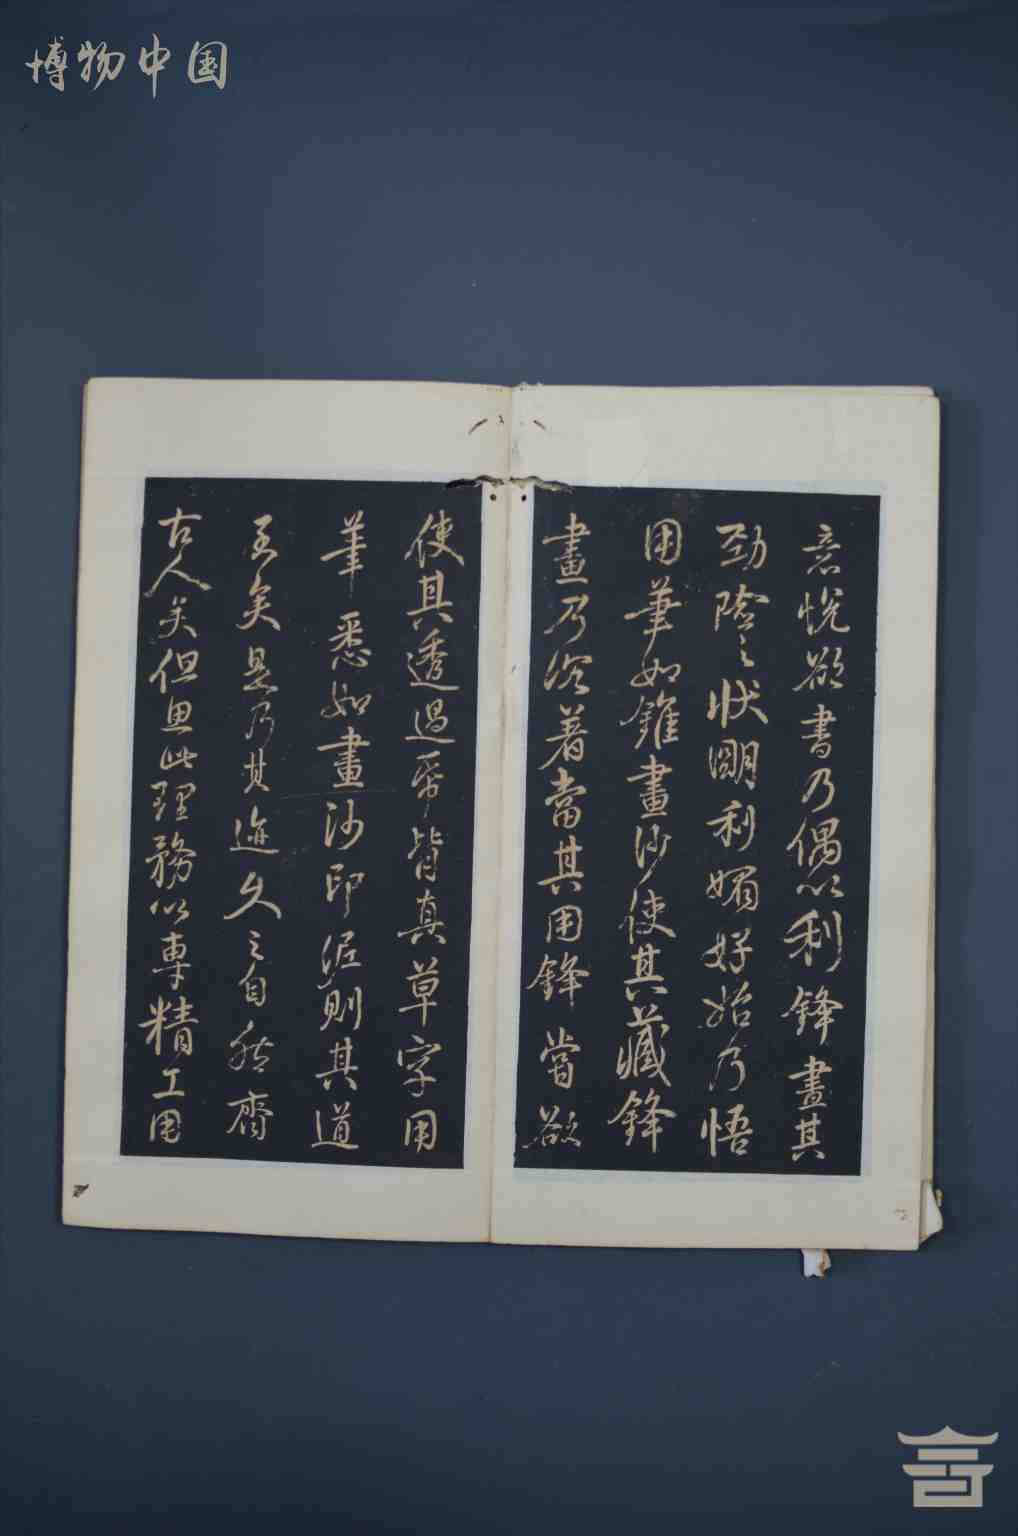 博物中国
意悅欲書乃偶以利鋒畫其
勁險之狀朙利媚好始乃悟
用筆如錐畫沙使其藏鋒
畫乃沉著當其用鋒常欲
使其透過紙背真草字用
筆悉如畫沙印泥則其道
至矣是乃其迹久之自然齊
古人矣但思此理務以專精工用